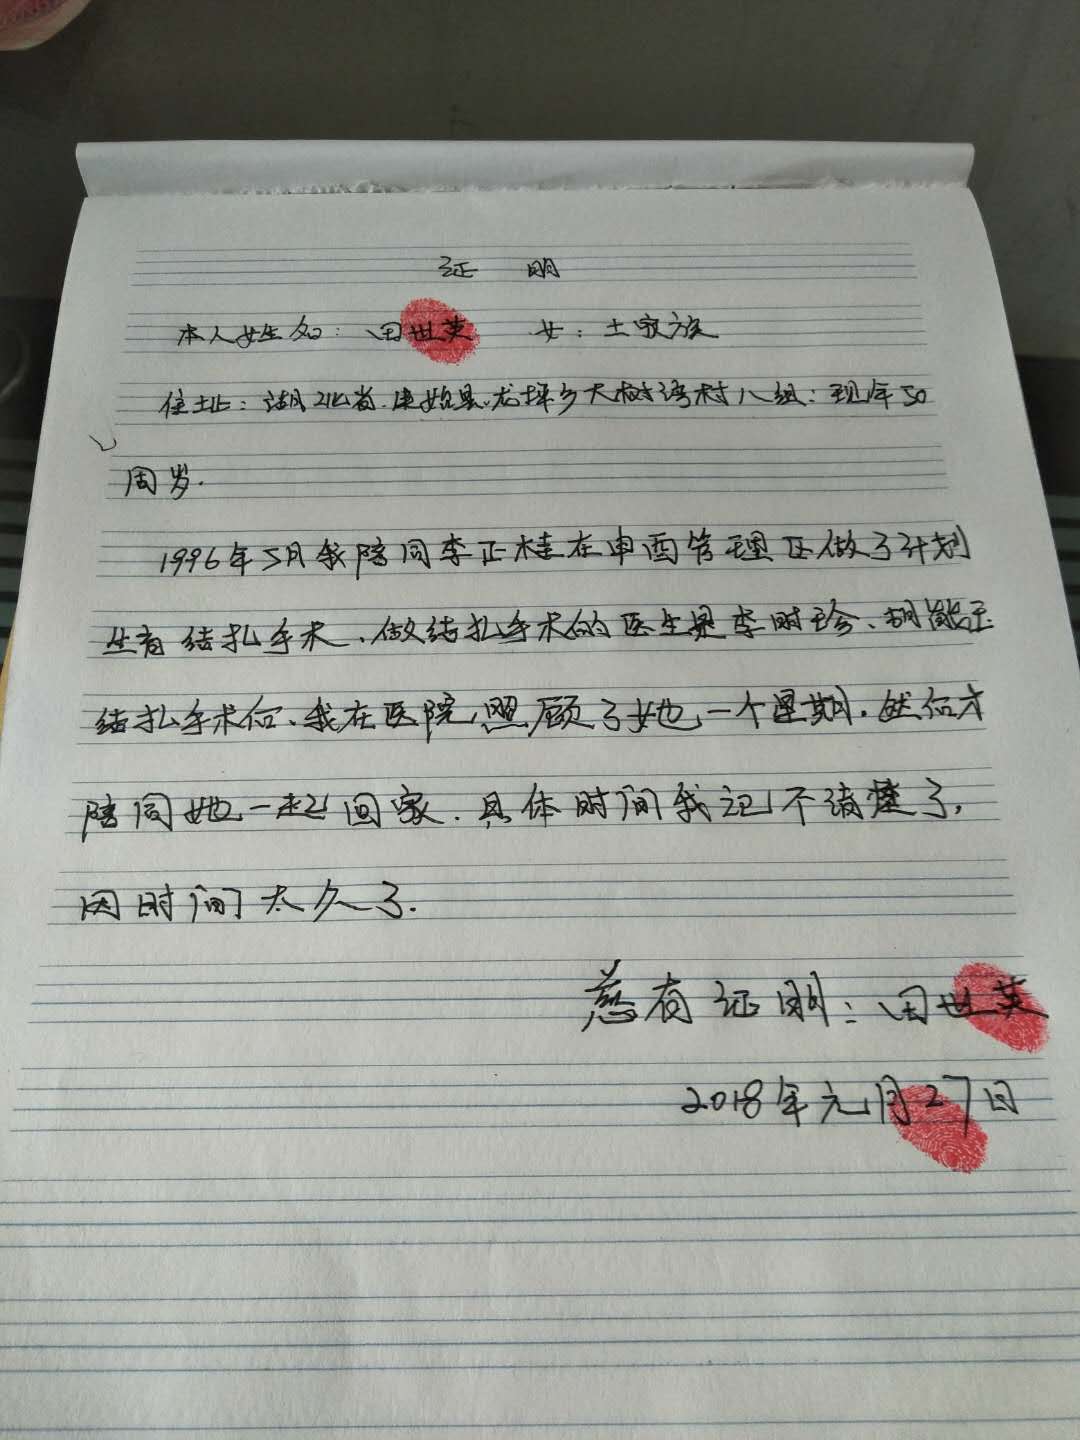 证 明
本人姓名：田世英 女：土家族
住址：湖北省.建始县.龙坪乡大树湾村八组：现年50
周岁.
1996年5月我陪同李正桂在申酉管理区做了计划
生育结扎手术、做结扎手术的医生是李时珍、胡
结扎手术后、我在医院照顾了她一个星期.然后才
陪同她一起回家.具体时间我记不清楚了,
因时间太久了.
慈有证明：田世英
2018年元月27日